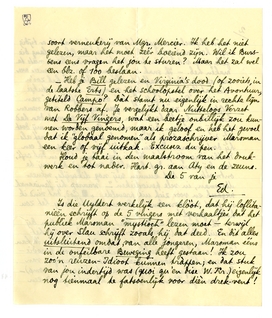 2)
soort verneukerij van Mgr. Mercier. Ik heb het niet
gelezen, maar het moet zéér boeiend zijn. Wil ik Bur-
sens eens vragen het jou te sturen? Maar het zal wel
een bz. of 100 beslaan.
— Heb je Bill gelezen en Virginia's dood (of zoiets, in
de laatste Erts) en het schoolopstel over het Avonduur,
getiteld Campo? Dat staat nu eigenlijk in rechte lijn
van Robbers af. Je vergelijkt ook Nutteloos Verzet
met De Vijf Vingers, wat een beetje onbillijk zou kun-
nen worden genoemd, maar ik geloof en heb het gevoel
dat ik, globaal genomen als prozaschrijver, Marsman
een keer of vijf uitkak. Excusez du peu.
Houd je taai in den maalstroom van het druk-
werk en tot nader. Hart. gr. aan Aty en de zeune.
De 5 van je
Ed.
Is die Uyldert werkelijk een klóót, dat hij
schrijft op de 5 vlingers met verhaaltjes dat het
publiek Marsman "mystisch" lezen moet — terwijl
hij over Slau schrijft zooals hij dat deed. En dit alles
uitsluitend omdat van alle jongeren, Marsman eens
in de onfeilbare Beweging heeft gestaan! Ik zou
zoo'n reuzen-idioot kunnen trappen; en dat stuk
van jou indertijd was (quoi qu'en dise W. Kr.) eigenlijk
nog tienmaal te fatsoenlijk voor dien drek-vent!